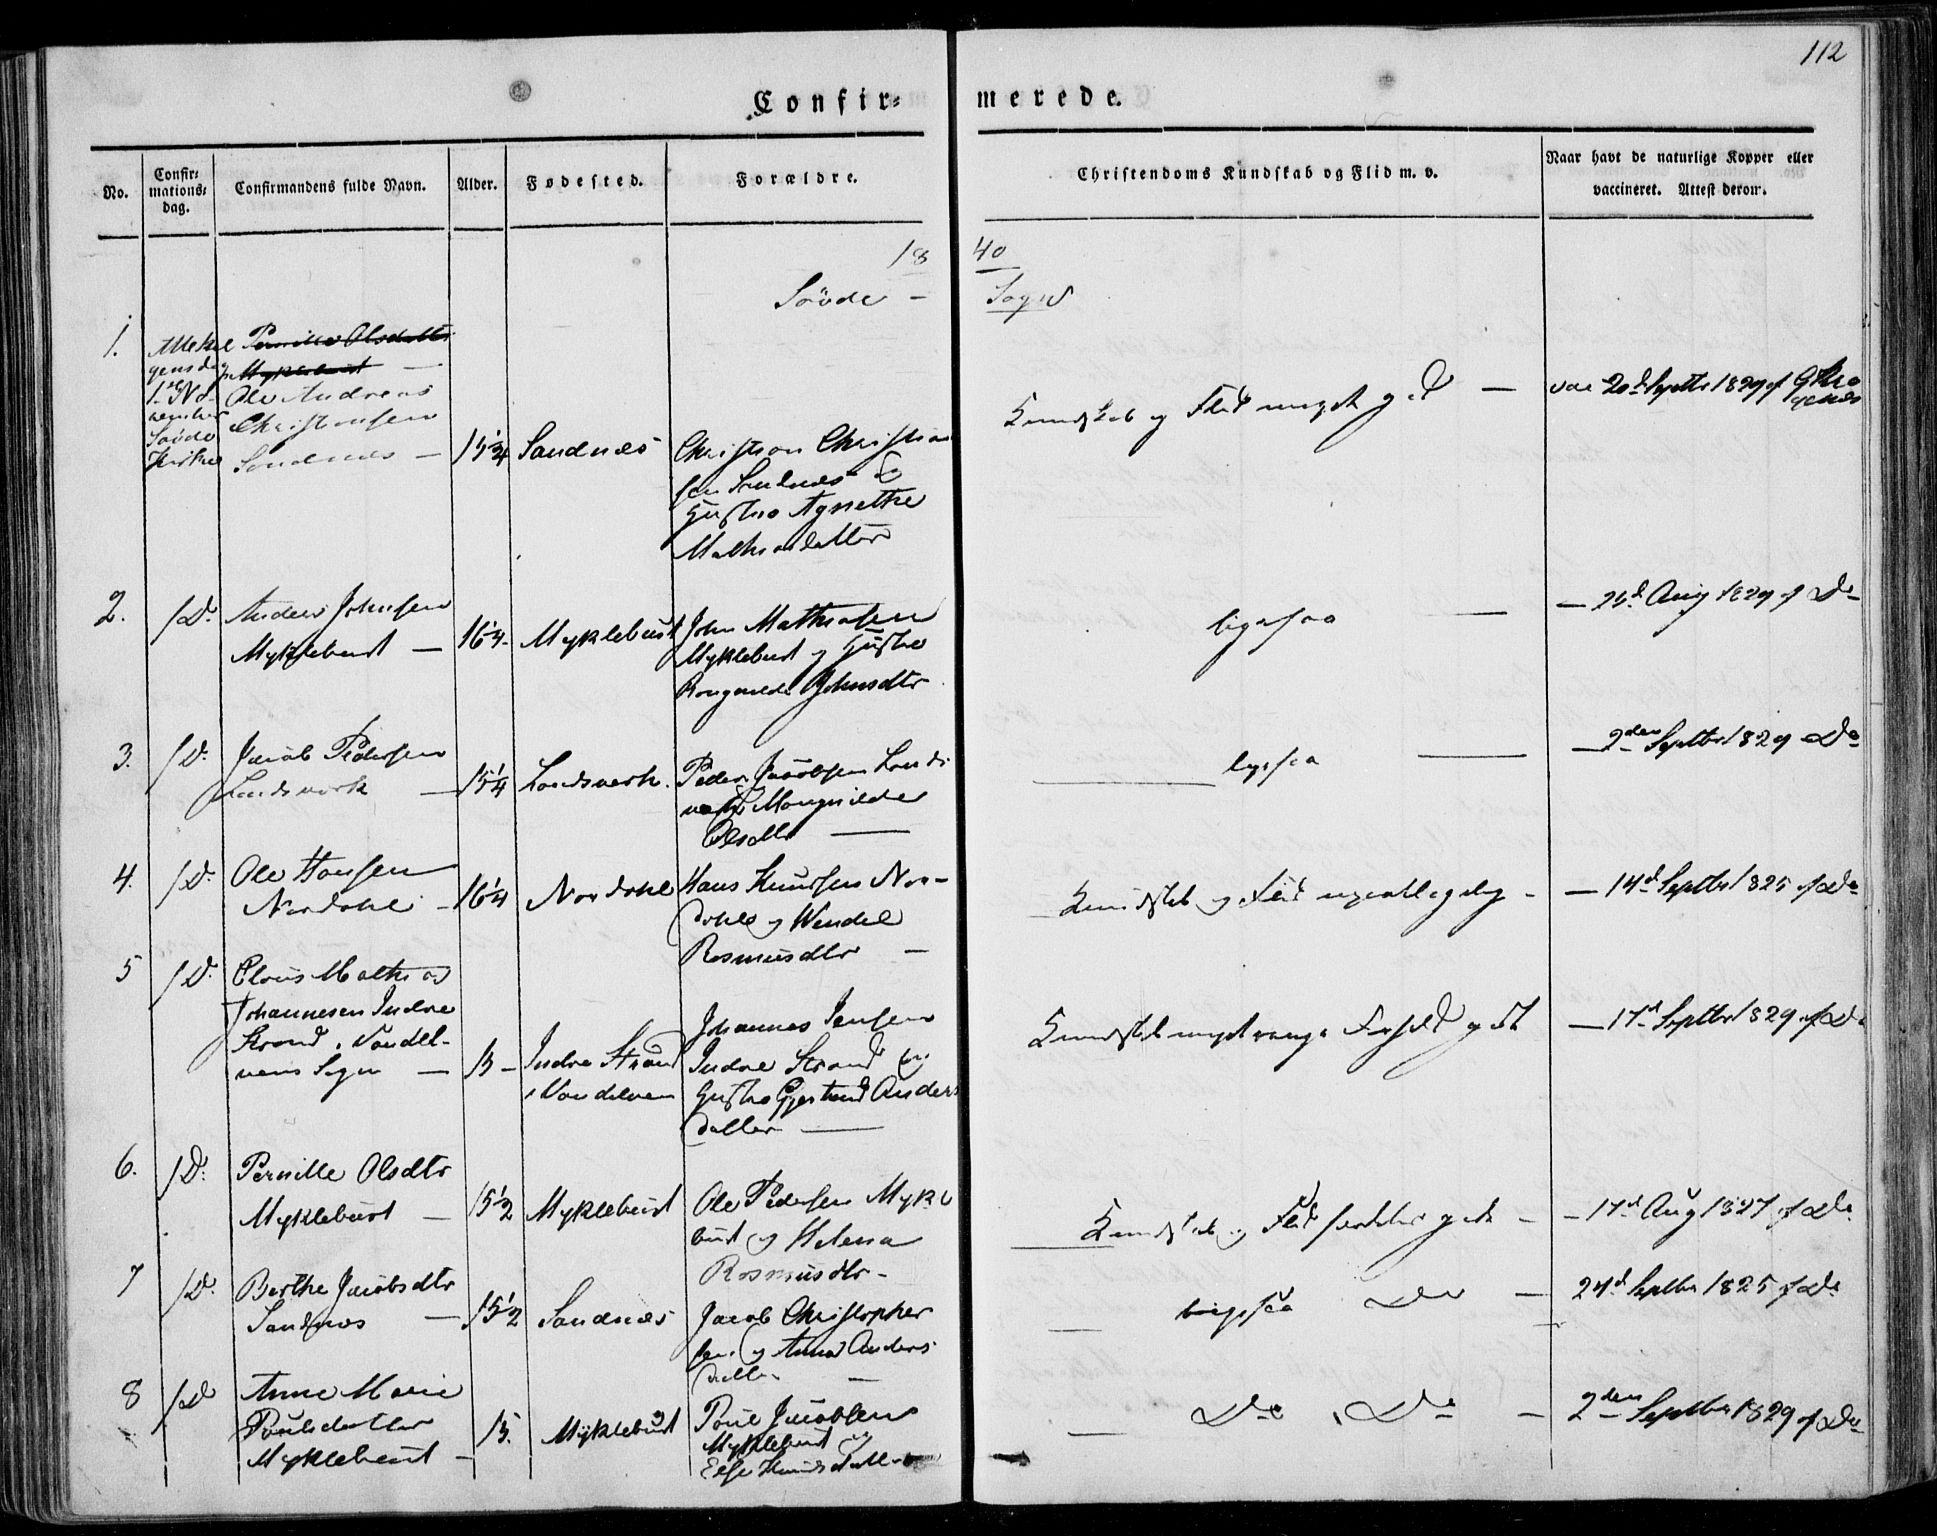 112
Confir= merede.
No.
Confir=
mations=
dag.
Confirmandens fulde Navn.
Alder.
Fødested.
Forældre.
Christendoms Kundskab og Flid m. v.
Naar havt de naturlige Kopper eller
vaccineret. Attest derom.
18 40
Søvde - Sogn
1.
Allehel
gensdag
1ste No-
vember
Søvde
Kirke
Pernille Olsdatter
Myklebust
Ole Andreas
Christensen
Sandnes —
15 1/4
Sandnes
Christian Christian
sen Sandnes og
Hustro Agnethe
Mathiasdatter
Kundskab og Flid meget god —
vac 20d Septbr 1829 af
2.
/D.
Anders Johnsen
Myklebust —
16 1/4
Myklebust
John Mathiasen
Myklebust og Hustro
Johnsdtr
ligesaa —
— 25d Aug 1829 af Do
3.
/D.
Jacob Pedersen
Landsverk —
15 1/4
Landsverk.
Peder Jacobsen Lands
Olsdtr —
ligesaa —
— 2den Septbr 1829 Do
4.
/D.
Ole Hansen
Nordahl -
16 1/4
Nordahl
Hans Knudsen Nor-
dahl og Wendel
Rasmusdtr —
Kundskab og Flid -
— 14d Septbr 1825 af Do
5
/D.
Claus Mathias
Johannesen Indre
Strand i Vandel-
vens Sogn —
15 -
Indre Strand
i Vandelven
Johannes Jensen
Indre Strand og
Hustro Gjertrud Anders
datter —
Kundskab meget
— 17d Septbr 1829 af Do
6.
/D.
Pernille Olsdtr
Myklebust —
15 1/2
Myklebust
Ole Pedersen Mykle
bust og Helena
Rasmusdtr -
Kundskab og Flid gode -
— 17d Aug 1827 af Do
7
/D.
Berthe Jacobsdtr
Sandnes —
15 1/2
Sandnes
Jacob Christopher
sen og Anna Anders
datter —
ligesaa Do —
24d Septbr 1825 af Do
8
/D
Anne Marie
Paulsdatter
Myklebust -
15.
Myklebust
Paul Jacobsen
Myklebust og
Else Knudsdatter
Do Do —
2den Septbr 1829 af Do